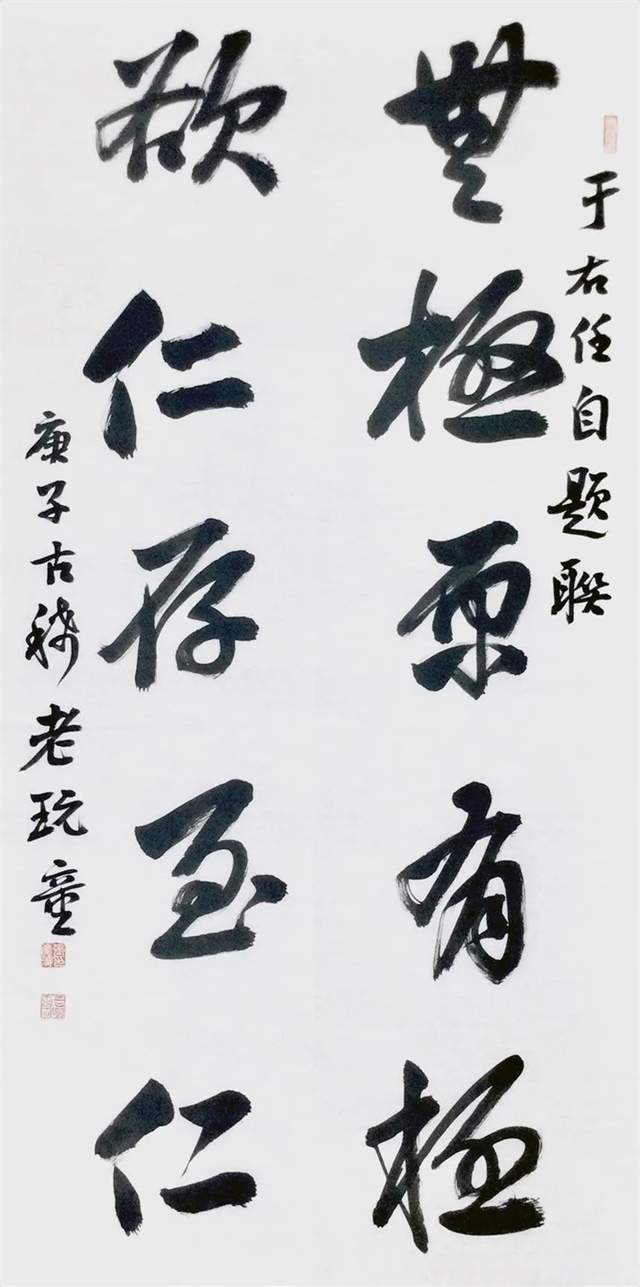 于右任自题联
無極原有極
欲仁存至仁
庚子古稀老玩童